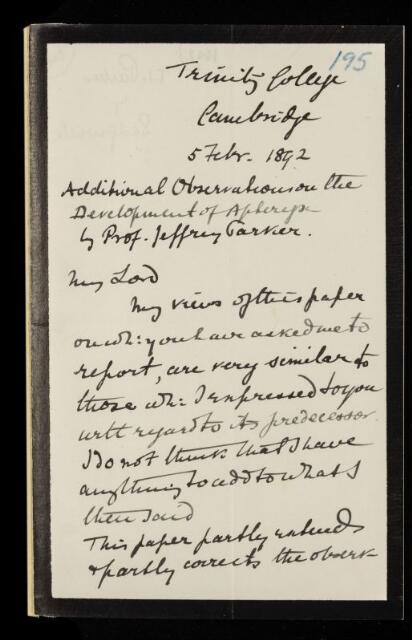 195
Trinity College
Cambridge
5 Febr. 1892
Additional Observations on the
Development of Apteryx
by Prof. Jeffrey Parker.
My Lord
My views of this paper
on wh: you have asked me to
report, are very similar to
those wh: I expressed to you
with regard to its predecessor.
I do not think that I have
anything to add to what I
then said
This paper partly extends
& partly corrects the observ-